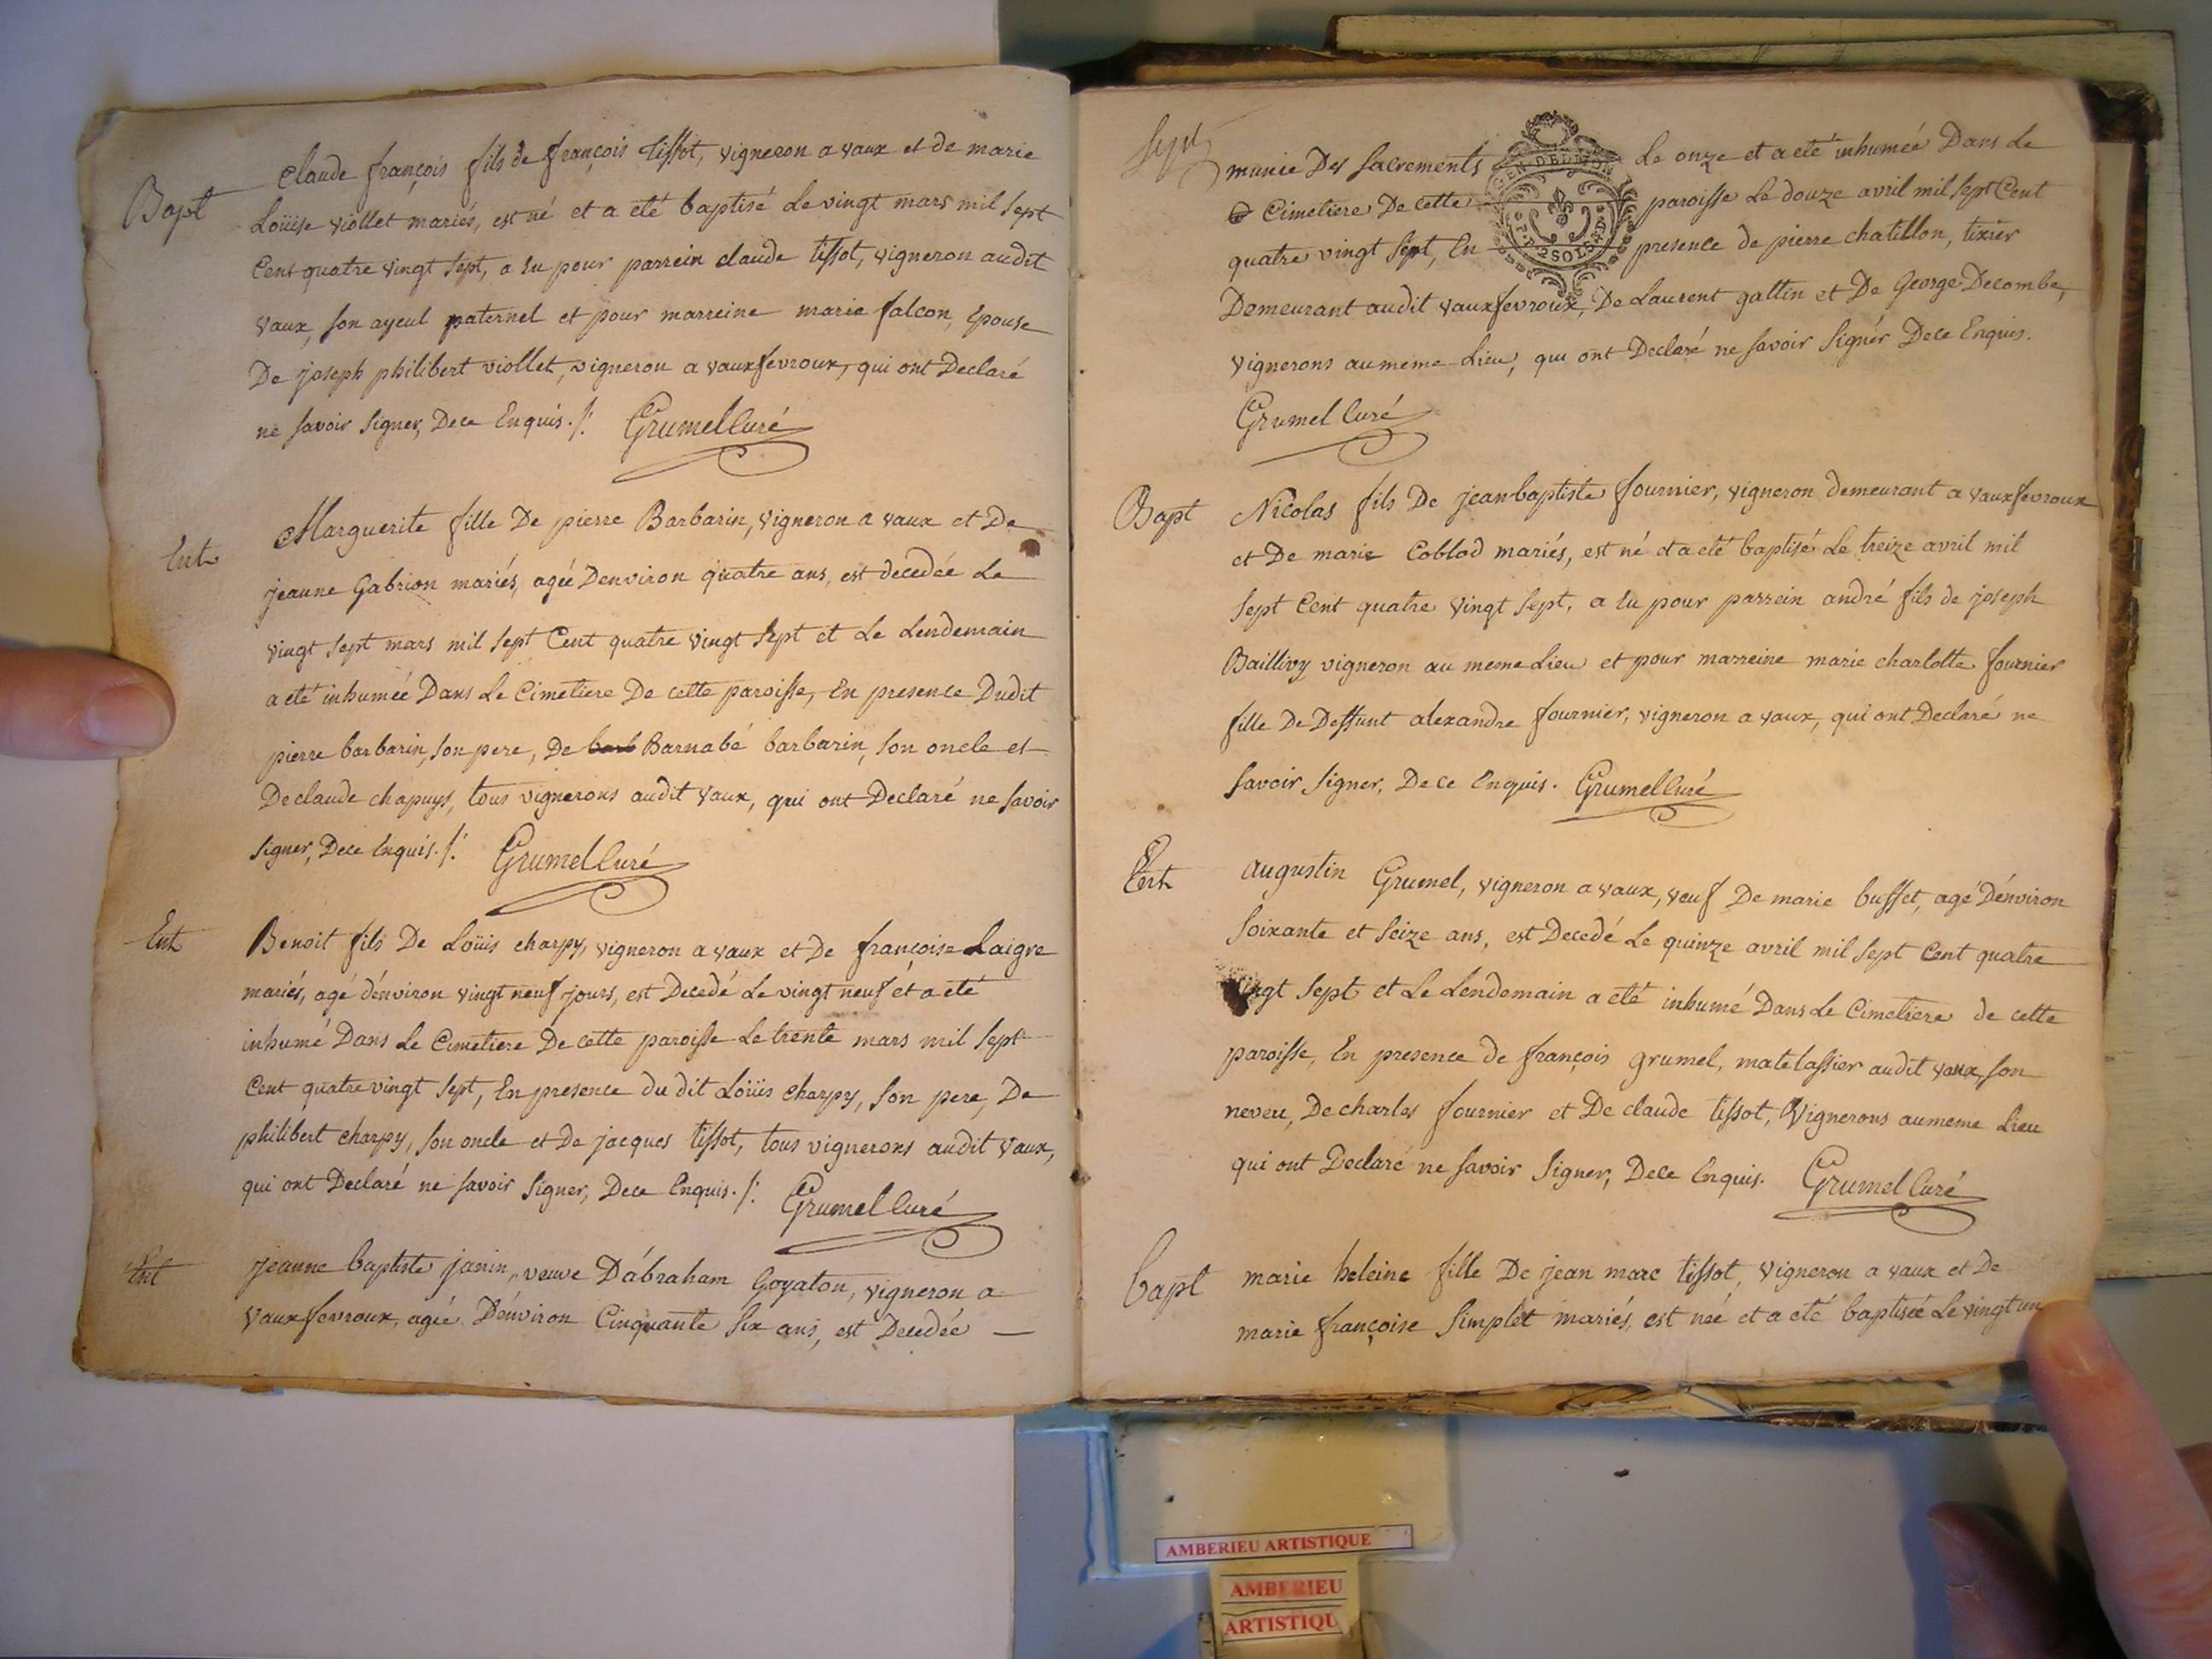 Bapt
Claude françois fils de françois tissot, vigneron a vaux et de marie
Loüise viollet mariés, est né et a eté baptisé Le vingt mars mil sept
Cent quatre vingt sept, a Eu pour parrein claude tissot, vigneron audit
vaux, son ayeul paternel et pour marreine marie falcon, Epouse
De joseph philibert viollet, vigneron a vauxfevroux, qui ont Declaré
ne savoir signer, Dece Enquis ./. Grumel Curé
Ent
Marguerite fille De pierre Barbarin, vigneron a vaux et De
jeanne Gabrion mariés, ageé Denviron quatre ans, est decedeé Le
vingt sept mars mil sept Cent quatre vingt sept et Le Lendemain
a eté inhumeé Dans Le Cimetiere De cette paroisse, En presence Dudit
pierre barbarin, son pere, De barb Barnabé barbarin, son oncle et
De claude chapuys, tous vignerons audit vaux, qui ont Declaré ne savoir
signer, Dece Enquis ./. Grumel Curé
Ent
Benoit fils De Loüis charpy, vigneron a vaux et De françoise Laigre
mariés, agé d'environ vingt neuf jours, est Decedé Le vingt neuf et a eté
inhumé Dans Le Cimetiere De cette paroisse Le trente mars mil sept
Cent quatre vingt sept, En presence du dit Loüis charpy, son pere, De
philibert charpy, son oncle et De jacques tissot, tous vignerons audit vaux,
qui ont Declaré ne savoir signer, Dece Enquis ./. Grumel Curé
Ent
jeanne baptiste janin, veuve D'abraham Goyaton, vigneron a
vauxfevroux, ageé D'environ Cinquante six ans, est Decedeé —
Sept
munie Des sacrements Le onze et a eté inhumeé Dans Le
Cimetiere De cette paroisse Le douze avril mil sept Cent
quatre vingt sept, En presence de pierre chatillon, tixier
Demeurant audit vauxfevroux, De Laurent gallin et De George Decombe,
vignerons au meme Lieu, qui ont Declaré ne savoir signer Dece Enquis.
Grumel Curé
GEN. DE DIJON
2 SOLS
Bapt
Nicolas fils De jean baptiste fournier, vigneron demeurant a vauxfevroux
et De marie Coblod mariés, est né et a eté baptisé Le treize avril mil
sept Cent quatre vingt sept, a Eu pour parrein andré fils de joseph
Baillivy vigneron au meme Lieu et pour marreine marie charlotte fournier
fille De Deffunt alexandre fournier, vigneron a vaux, qui ont Declaré ne
savoir signer, De ce Enquis. Grumel Curé
Ent
augustin Grumel, vigneron a vaux, veuf De marie buffet, agé D'environ
soixante et seize ans, est Decedé Le quinze avril mil sept Cent quatre
vingt sept et Le Lendemain a eté inhumé Dans Le Cimetiere de cette
paroisse, En presence de françois grumel, matelassier audit vaux, son
neveu, De charles fournier et De claude tissot, vignerons au meme Lieu
qui ont Declaré ne savoir signer, Dece Enquis. Grumel Curé
bapt
marie heleine fille De jean marc tissot, vigneron a vaux et De
marie françoise simplet mariés, est neé et a eté baptiseé Le vingt un
AMBERIEU ARTISTIQUE
AMBERIEU
ARTISTIQU